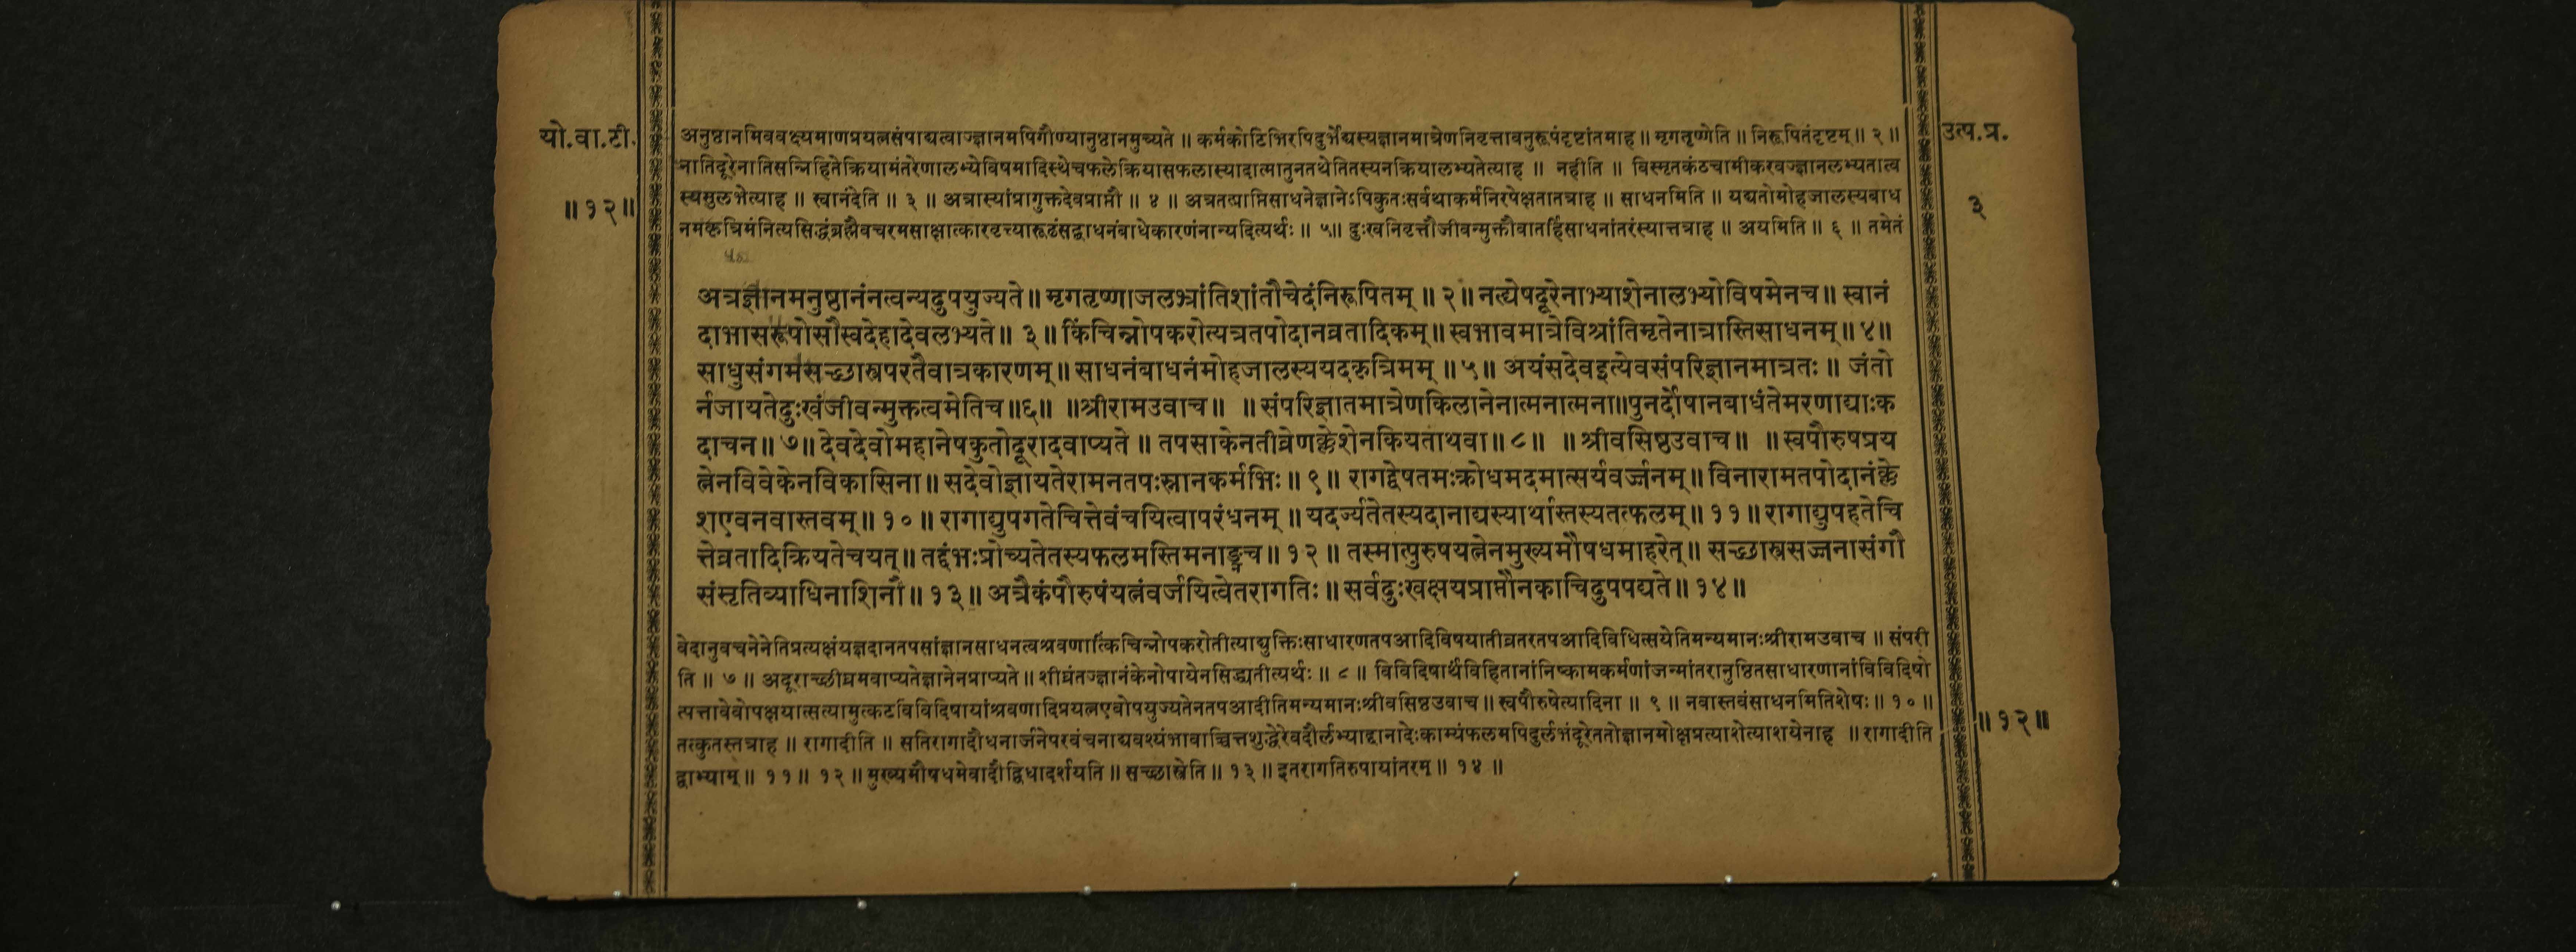 यो.वा.टी.
॥१२॥
उत्प.प्र.
३
॥१२॥
अनुष्ठानमिववक्ष्यमाणप्रयत्नसंपाद्यत्वाज्ज्ञानमपिगौण्यानुष्ठानमुच्यते ॥ कर्मकोटिभिरपिदुर्भेद्यस्यज्ञानमात्रेणनिवृत्तावनुरूपंदृष्टांतमाह ॥ मृगतृष्णेति ॥ निरूपितंदृष्टम् ॥ २ ॥
नातिदूरेनातिसन्निहितेक्रियामंतरेणालभ्येविषमादिस्थेचफलेक्रियासफलास्यादात्मातुनतथेतितस्यनक्रियालभ्यतेत्याह ॥ नहीति ॥ विस्मृतकंठचामीकरवज्ज्ञानलभ्यतात्व
स्यसुलभेत्याह ॥ स्वानंदेति ॥ ३ ॥ अत्रास्यांप्रागुक्तदेवप्राप्तौ ॥ ४ ॥ अत्रतत्प्राप्तिसाधनेज्ञानेऽपिकुतःसर्वथाकर्मनिरपेक्षतातत्राह ॥ साधनमिति ॥ यद्यतोमोहजालस्यबाध
नमकृत्रिमंनित्यसिद्धंब्रह्मैवचरमसाक्षात्कारवृत्त्यारूढंसद्बाधनंबाधेकारणंनान्यदित्यर्थः ॥ ५॥ दुःखनिवृत्तौजीवन्मुक्तौवातर्हिसाधनांतरंस्यात्तत्राह ॥ अयमिति ॥ ६ ॥ तमेतं
अत्रज्ञानमनुष्ठानंनत्वन्यदुपयुज्यते ॥ मृगतृष्णाजलभ्रांतिशांतौचेदंनिरूपितम् ॥ २॥ नत्येषदूरेनाभ्याशेनालभ्योविषमेनच ॥ स्वानं
दाभासरूपोसौस्वदेहादेवलभ्यते ॥ ३ ॥ किंचिन्नोपकरोत्यत्रतपोदानव्रतादिकम् ॥ स्वभावमात्रेविश्रांतिमृतेनात्रास्तिसाधनम् ॥ ४॥
साधुसंगमसच्छास्त्रपरतैवात्रकारणम् ॥ साधनंबाधनंमोहजालस्ययदकृत्रिमम् ॥५॥ अयंसदेवइत्येवसंपरिज्ञानमात्रतः ॥ जंतो
र्नजायतेदुःखंजीवन्मुक्तत्वमेतिच॥६॥ ॥श्रीरामउवाच॥ ॥संपरिज्ञातमात्रेणकिलानेनात्मनात्मना॥पुनर्दोषानबाधंतेमरणाद्याःक
दाचन॥७॥ देवदेवोमहानेषकुतोदूरादवाप्यते ॥ तपसाकेनतीव्रेणक्लेशेनकियताथवा॥८॥ ॥श्रीवसिष्ठउवाच॥ ॥स्वपौरुषप्रय
त्नेनविवेकेनविकासिना॥ सदेवोज्ञायतेरामनतपःस्नानकर्मभिः॥९॥ रागद्वेषतमःक्रोधमदमात्सर्यवर्ज्जनम्॥ विनारामतपोदानंक्ले
शएवनवास्तवम्॥१०॥ रागाद्युपगतेचित्तेवंचयित्वापरंधनम् ॥ यदर्ज्यतेतस्यदानाद्यस्यार्थास्तस्यतत्फलम्॥११॥ रागाद्युपहतेचि
त्तेव्रतादिक्रियतेचयत्॥ तद्दंभःप्रोच्यतेतस्यफलमस्तिमनाङ्नच॥१२॥ तस्मात्पुरुषयत्नेनमुख्यमौषधमाहरेत्॥ सच्छास्त्रसज्जनासंगौ
संसृतिव्याधिनाशिनौ॥१३॥ अत्रैकंपौरुषंयत्नंवर्जयित्वेतरागतिः॥ सर्वदुःखक्षयप्राप्तौनकाचिदुपपद्यते॥१४॥
वेदानुवचनेनेतिप्रत्यक्षंयज्ञदानतपसांज्ञानसाधनत्वश्रवणात्किंचिन्नोपकरोतीत्याद्युक्तिःसाधारणतपआदिविषयातीव्रतरतपआदिविधित्सयेतिमन्यमानःश्रीरामउवाच ॥ संपरी
ति ॥ ७ ॥ अदूराच्छीघ्रमवाप्यतेज्ञानेनप्राप्यते ॥ शीघ्रंतज्ज्ञानंकेनोपायेनसिद्ध्यतीत्यर्थः ॥ ८ ॥ विविदिषार्थंविहितानांनिष्कामकर्मणांजन्मांतरानुष्ठितसाधारणानांविविदिषो
त्पत्तावेवोपक्षयात्सत्यामुत्कटविविदिषायांश्रवणादिप्रयत्नएवोपयुज्यतेनतपआदीतिमन्यमानःश्रीवसिष्ठउवाच ॥ स्वपौरुषेत्यादिना ॥ ९ ॥ नवास्तवंसाधनमितिशेषः॥ १० ॥
तत्कुतस्तत्राह ॥ रागादीति ॥ सतिरागादौधनार्जनेपरवंचनाद्यवश्यंभावाच्चित्तशुद्धेरेवदौर्लभ्याद्दानादेःकाम्यंफलमपिदुर्लभंदूरेततोज्ञानमोक्षप्रत्याशेत्याशयेनाह ॥ रागादीति
द्वाभ्याम् ॥ ११ ॥ १२ ॥ मुख्यमौषधमेवादौद्विधादर्शयति ॥ सच्छास्त्रेति ॥ १३ ॥ इतरागतिरुपायांतरम् ॥ १४ ॥